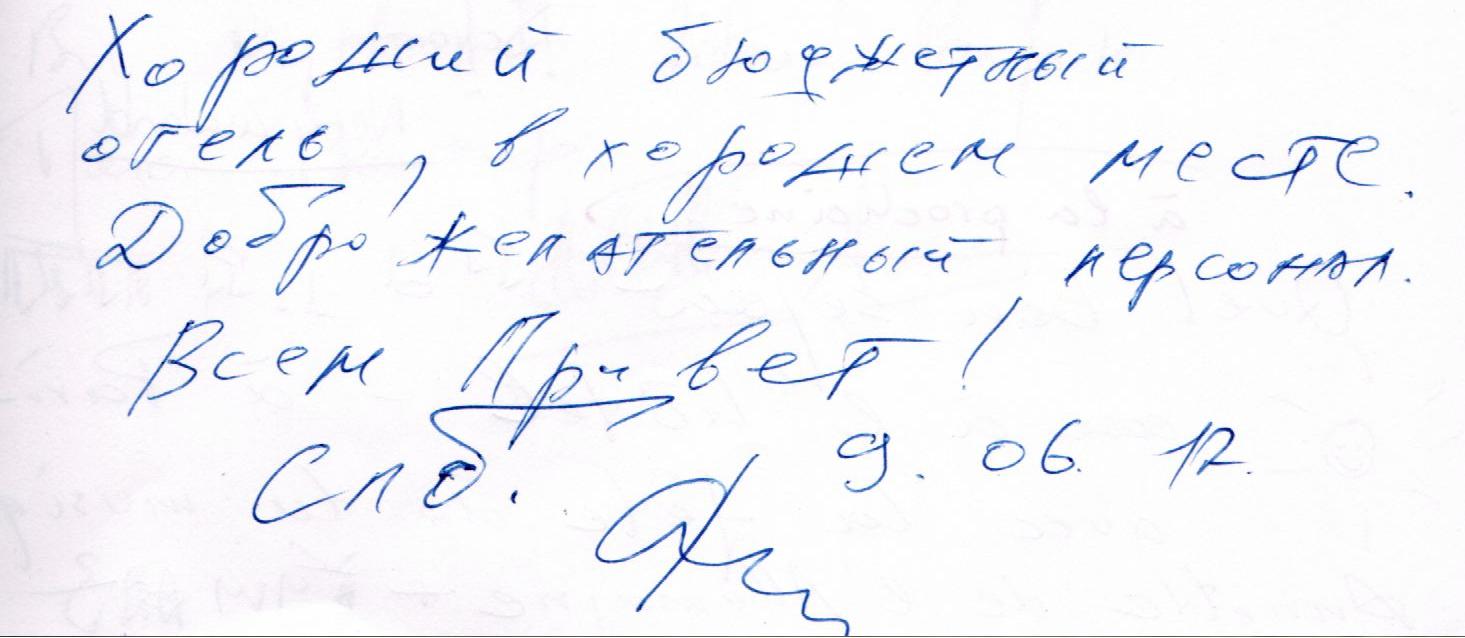 Хороший бюджетный
отель, в хорошем месте.
Доброжелательный персонал.
Всем Привет!
Спб. 9.06.12.